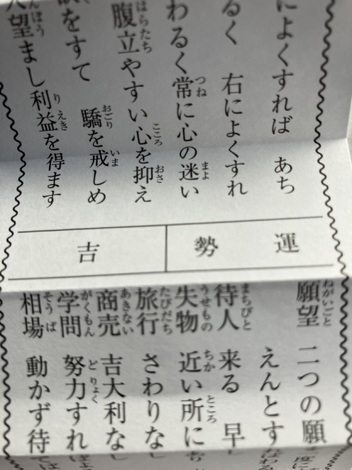 によくすれば あち
るく 右によくすれ
わるく常に心の迷い
腹立やすい心を抑え
をすて 驕を戒しめ
望まし利益を得ます
運勢 吉
願望 二つの願
えんとす
待人 来る 早
失物 近い所に
旅行 さわりな
商売 吉大利な
学問 努力すれ
相場 動かず待